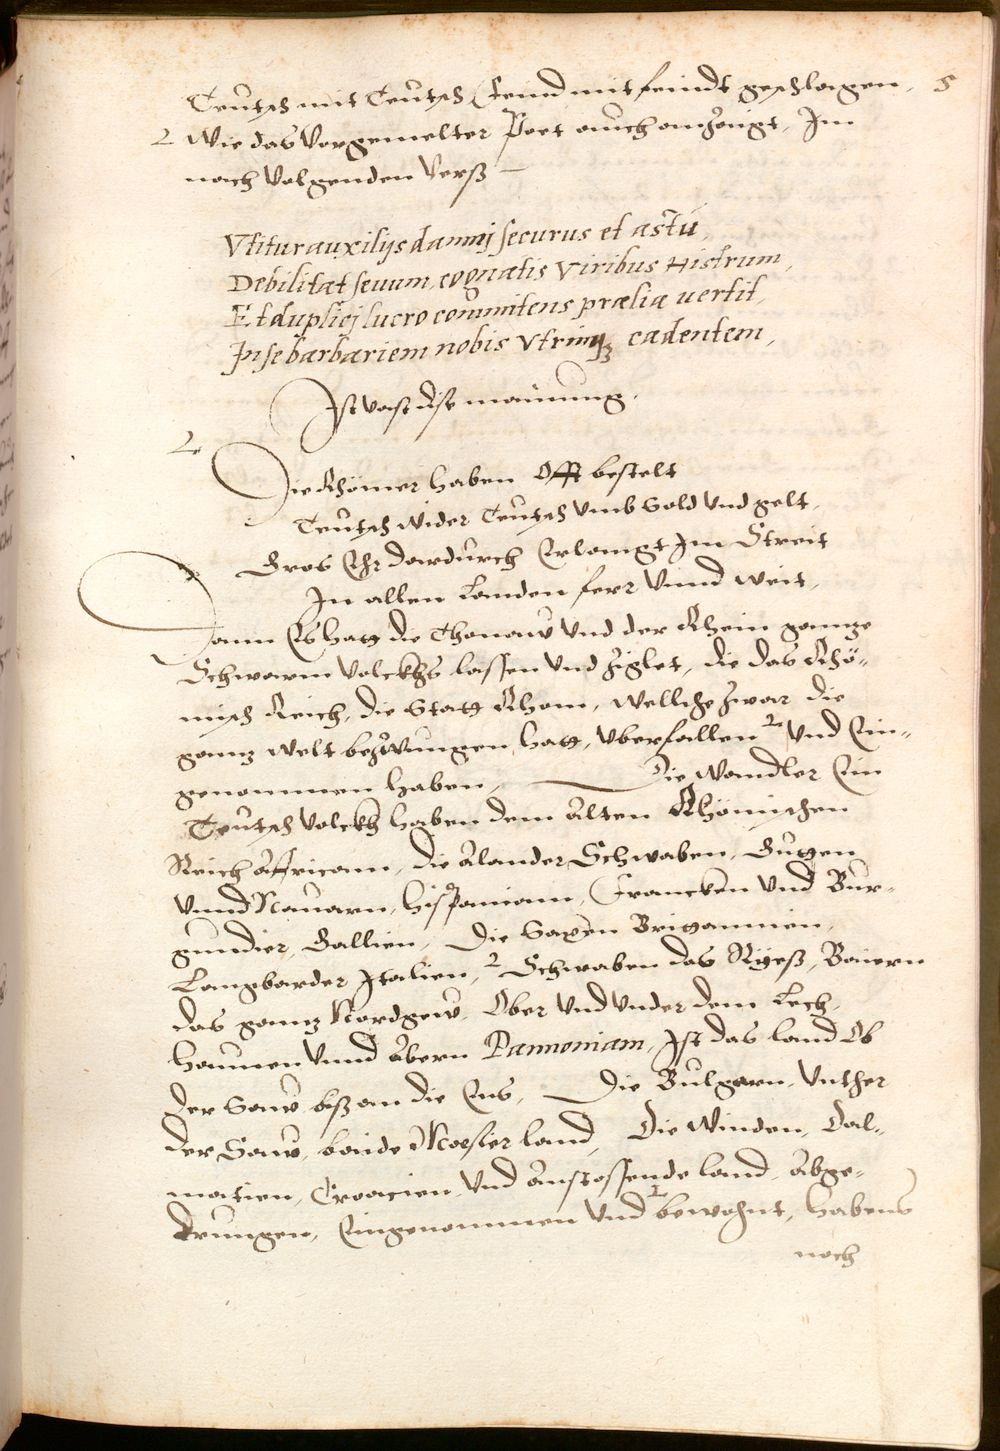 Teutsch mit Teutsch Feind mit feindt geschlagen, 5
2 Wie das Vorgemelter Poet auch anzeigt, Im
nach Volgenden Verß —
Vtitur auxilijs damnj securus et astu,
Debilitat seuum, cognatis Viribus Histrum,
Et duplicj lucro committens prælia uertit,
In se barbariem nobis Vtrinq3 cadentem,
Ist vast dise mainung.
2
Die Rhömer haben Offt bestelt
Teutsch wider Teutsch Vmb Gold Vnd gelt,
Gros Ehr dardurch Erlangt Im Streit
In allen Landen ferr Vnnd weit,
Dann Es hatt die Thonaw Vnd der Rhein gannze
Schwarm Volckhs lassen Vnd ziglet, die das Rhö-
misch Reich, die Statt Rhom, wellche zwar die
gannz welt bezwungen hatt, Vberfallen 2 Vnd Ein-
genommen haben, Die Wandler Ein
Teutsch Volckh haben dem Alten Rhömischen
Reich Affricam, die Alander Schwaben, Gutten
Vnnd Nauarn, Hispaniam, Francken Vnd Bur-
gundier, Gallien, Die Saxen Britannien,
Langbarder Italien, 2 Schwaben das Ryeß, Baiern
das gannz Nordgew, Ober Vnd Vnder dem Lech,
Haunen Vnnd Abern Pannoniam, Ist das land Ob
der Saw biß an die Ens, Die Bulgarn, Vnther
der Saw, baide Moesier land, Die Winden, Dal-
matien, Croacien, Vnd Anstossende land, Abge-
drungen, Eingenommen Vnd 2 bewohnt, habens
noch